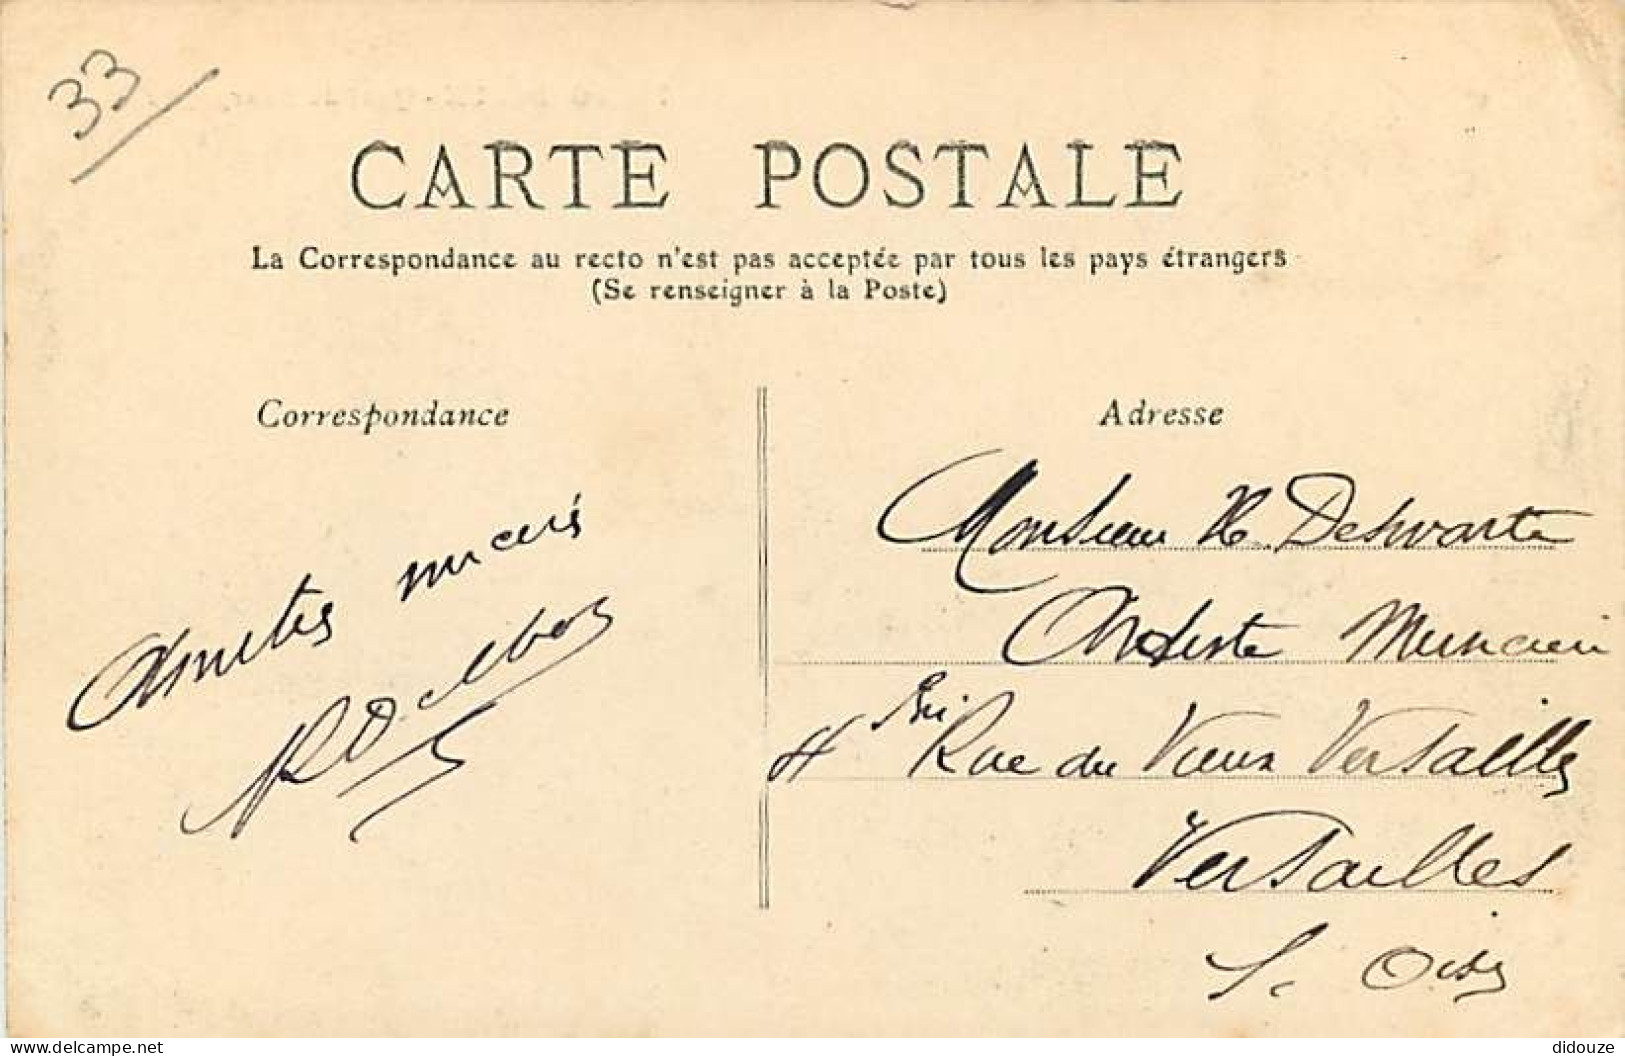 33
CARTE POSTALE
La Correspondance au recto n'est pas acceptée par tous les pays étrangers
(Se renseigner à la Poste)
Correspondance
Adresse
Amitiés
Monsieur H. Deswarte
Artiste Musicien
4 bis Rue du Vieux Versailles
Versailles
S. Oise
didouze
delcampe.net